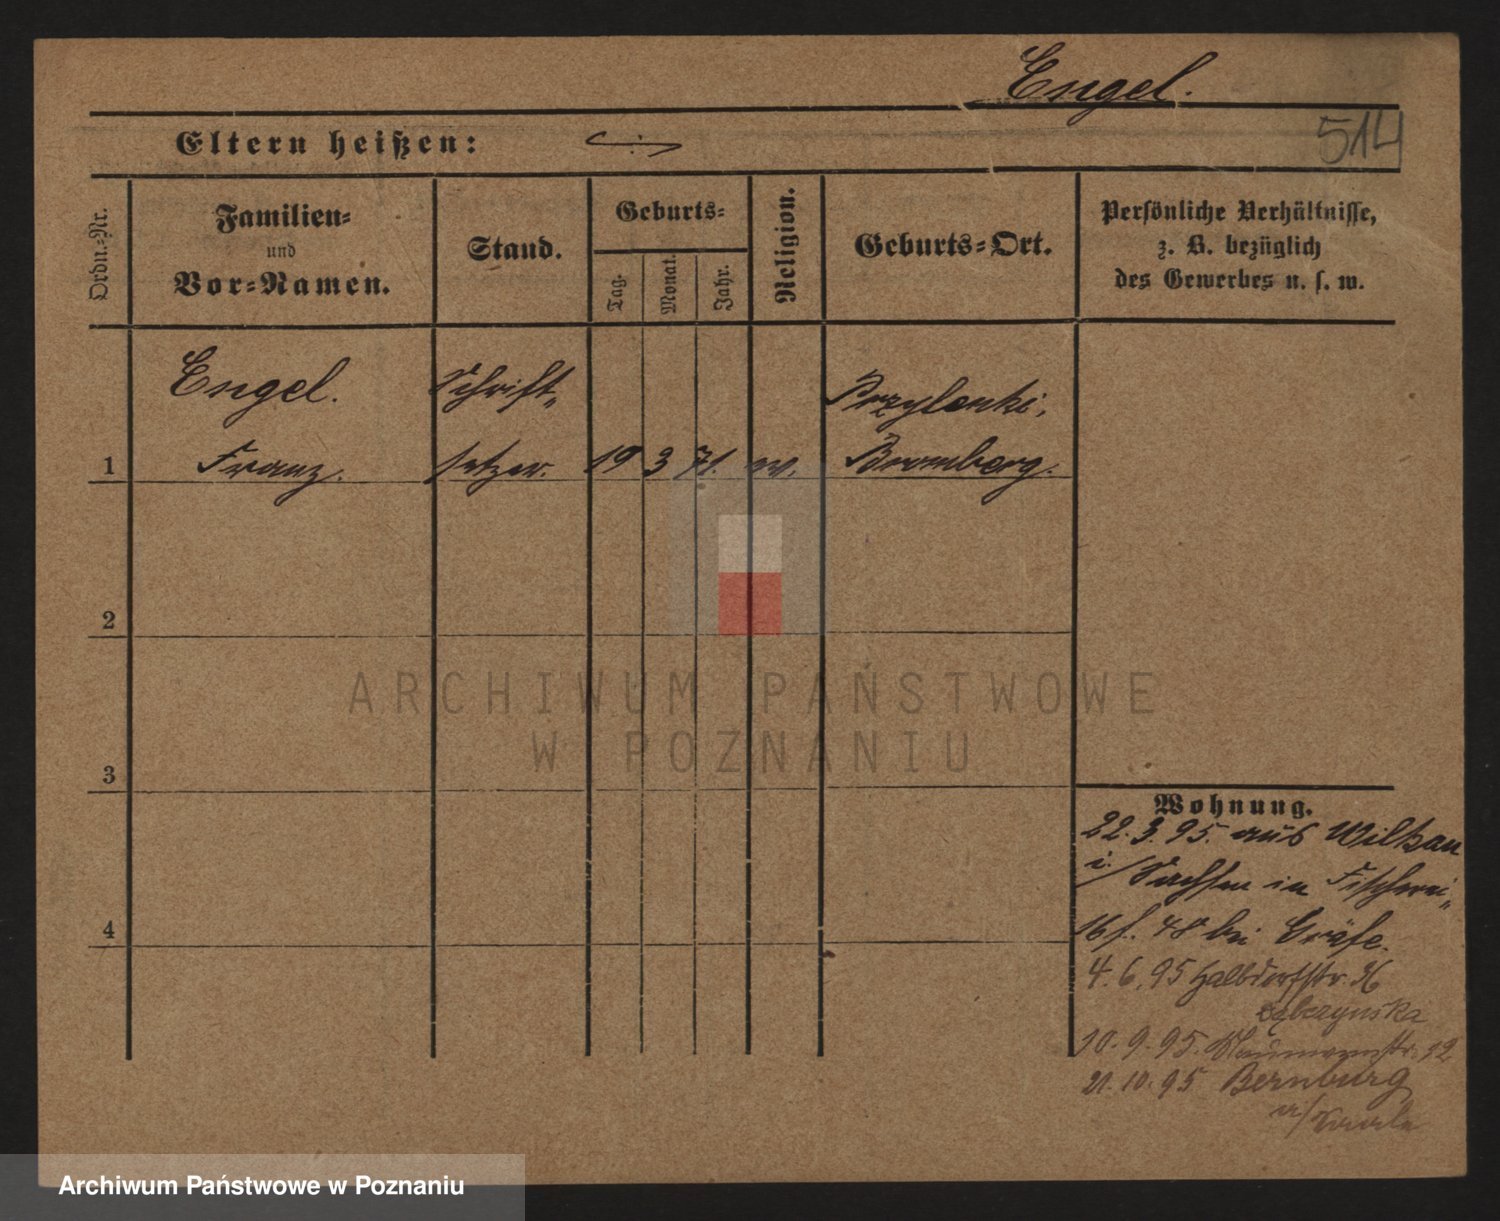 Engel.
514
Eltern heißen:
Ordn.-Nr.
Familien-
und
Vor-Namen.
Stand.
Geburts-
Tag.
Monat.
Jahr.
Religion.
Geburts-Ort.
Persönliche Verhältnisse,
z. B. bezüglich
des Gewerbes u. s. w.
Engel. Schrift- Przylenki,
1 Franz. setzer. 19 3 71. Bromberg.
2
3
4
Wohnung.
22.3.95. aus Wilkau
i/Sachsen in Fischerei-
48 bei Gräfe.
4.6.95 Halbdorfstr.
10.9.95. 12
21.10.95 Bernburg
ARCHIWUM PAŃSTWOWE
W POZNANIU
Archiwum Państwowe w Poznaniu